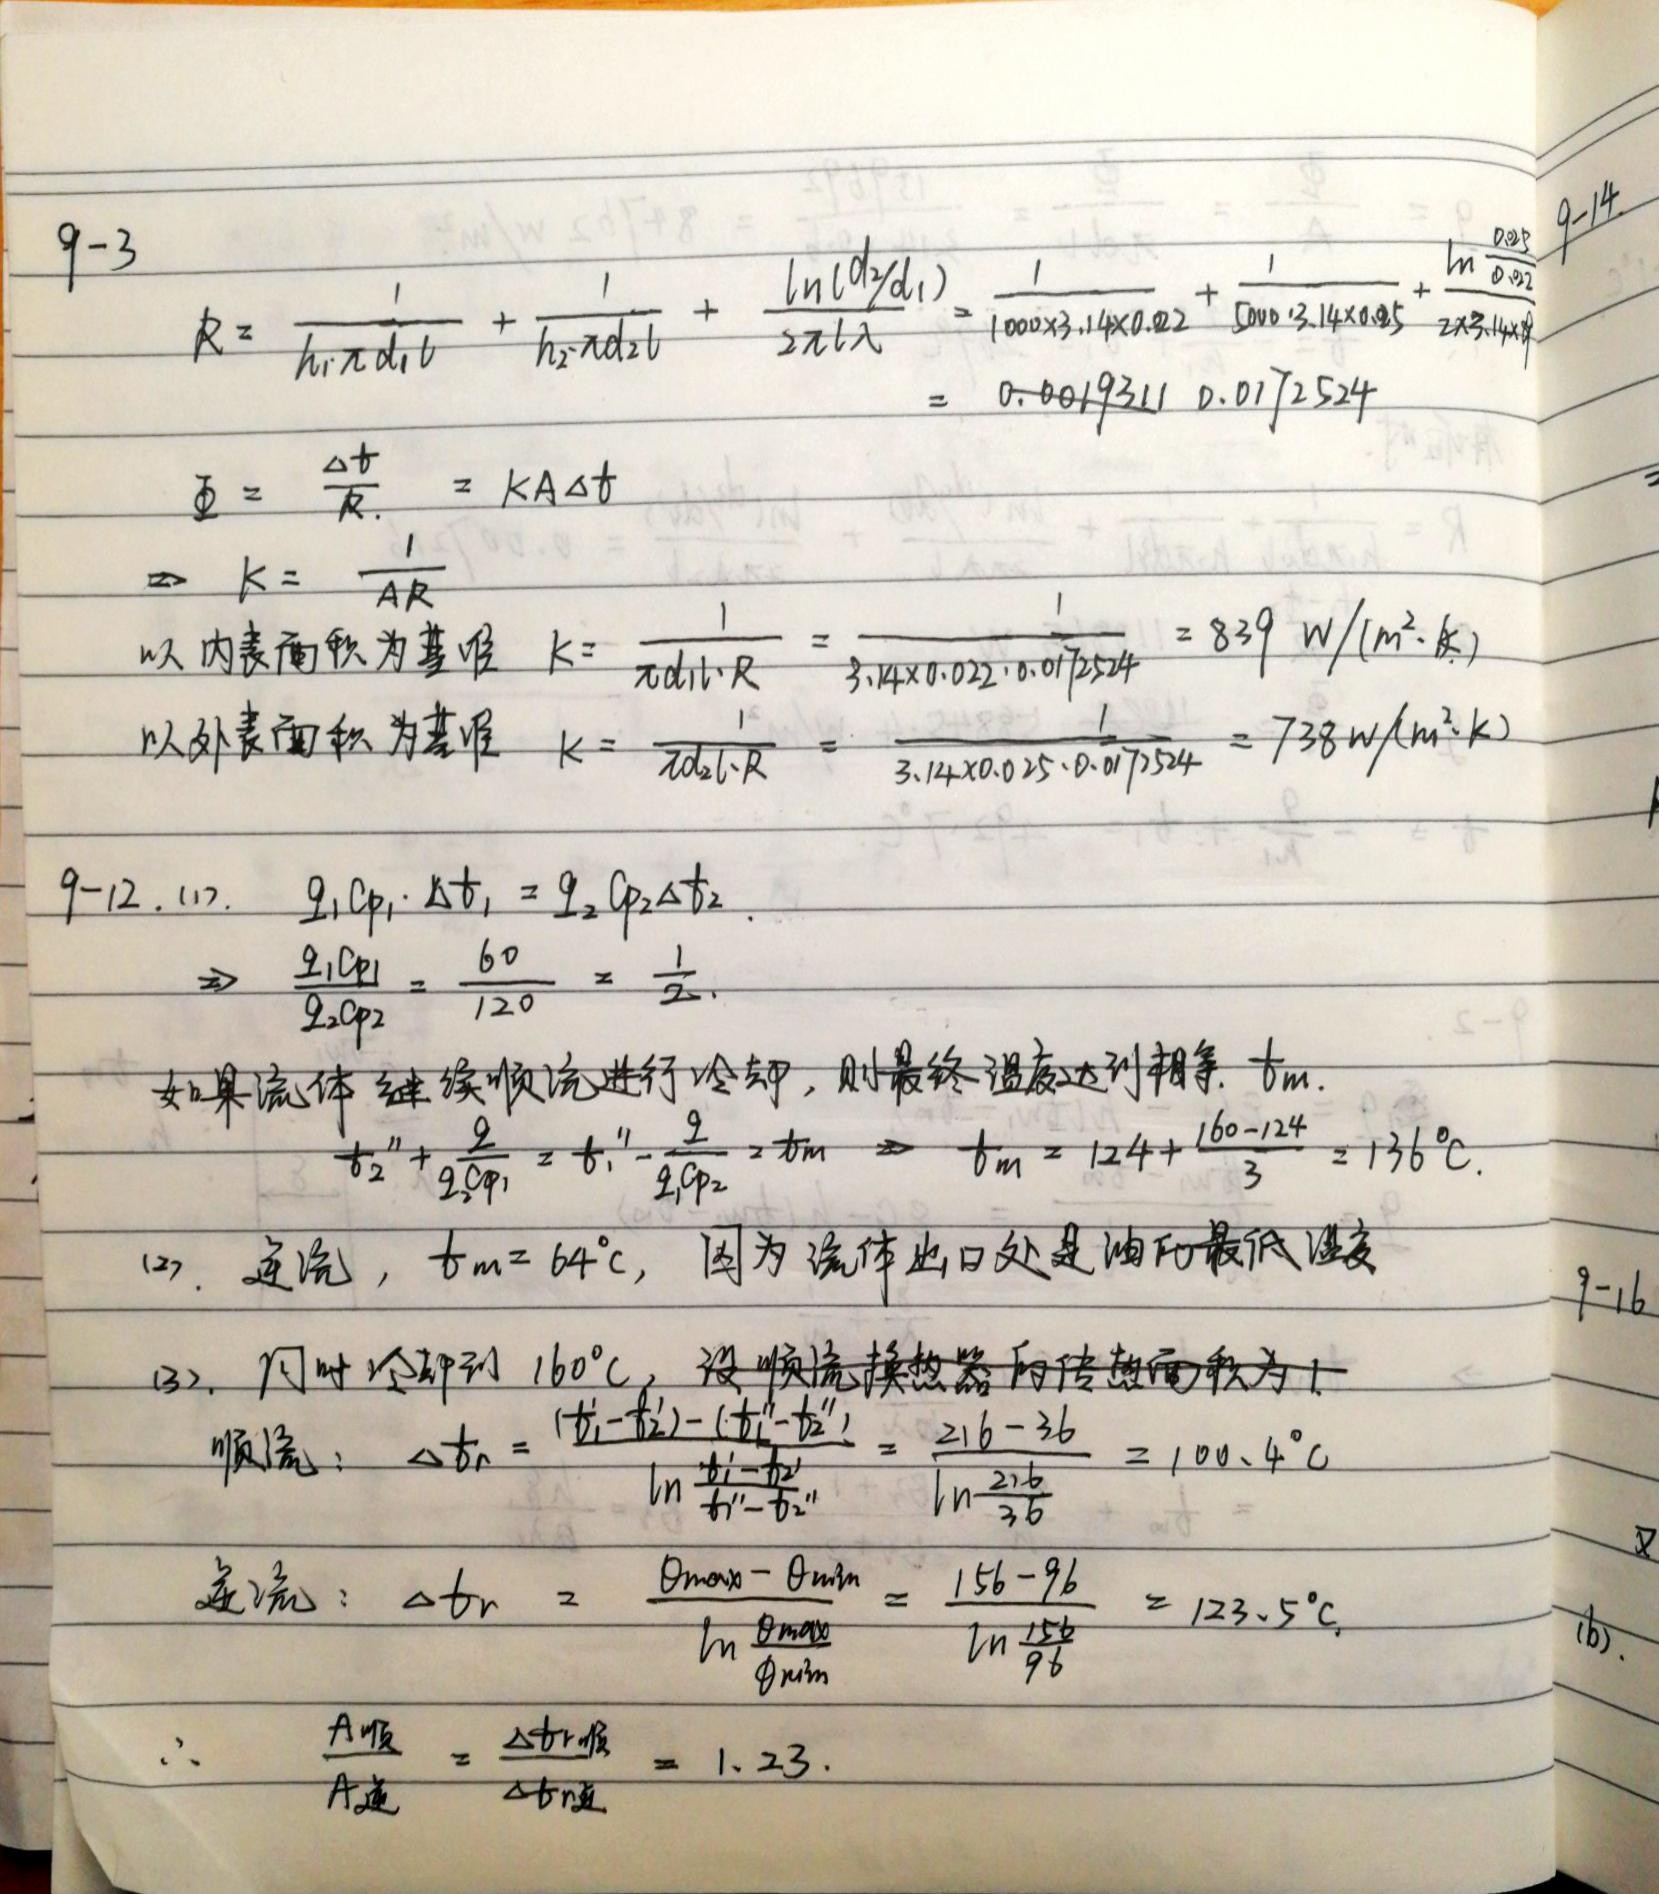 9-3
R = 1/(h₁·πd₁l) + 1/(h₂·πd₂l) + ln(d₂/d₁)/(2πlλ) = 1/(1000×3.14×0.022) + 1/(5000·3.14×0.025) + ln(0.025/0.022)/(2×3.14×
= 0.0172524
Φ = Δt/R. = KAΔt
⇒ K = 1/(AR)
以内表面积为基准 K = 1/(πd₁l·R) = 1/(3.14×0.022·0.0172524) = 839 W/(m²·K)
以外表面积为基准 K = 1/(πd₂l·R) = 1/(3.14×0.025·0.0172524) = 738 W/(m²·K)
9-12. (1). q₁Cp₁·Δt₁ = q₂Cp₂Δt₂.
⇒ q₁Cp₁/q₂Cp₂ = 60/120 = 1/2.
如果流体继续顺流进行冷却，则最终温度达到相等 tm.
t₂″ + q/(q₂Cp₁) = t₁″ - q/(q₁Cp₂) = tm ⇒ tm = 124 + (160-124)/3 = 136°C.
(2). 逆流，tm = 64°C，因为流体出口处是油的最低温度
(3). 同时冷却到 160°C，设顺流换热器的传热面积为1
顺流：Δtr = ((t₁′-t₂′)-(t₁″-t₂″))/(ln (t₁′-t₂′)/(t₁″-t₂″)) = (216-36)/(ln 216/36) = 100.4°C
逆流：Δtr = (θmax-θmin)/(ln θmax/θmin) = (156-96)/(ln 156/96) = 123.5°C.
∴ A顺/A逆 = Δtr顺/Δtr逆 = 1.23.
9-14
9-16
(b).